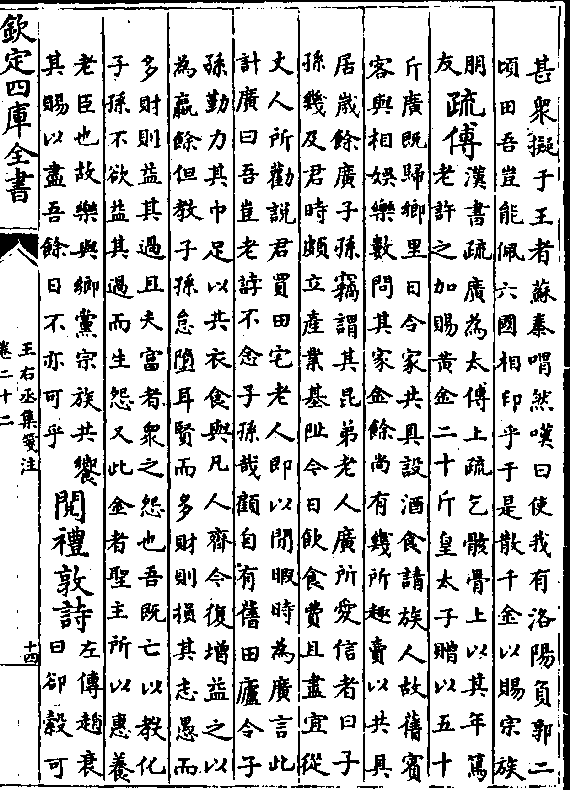 甚眾擬于王者蘇秦喟然嘆曰使我有洛陽負郭二
頃田吾豈能佩六國相印乎于是散千金以賜宗族
朋
友
疏傅
漢書疏廣為太傅上疏乞骸骨上以其年篤
老許之加賜黃金二十斤皇太子贈以五十
斤廣既歸鄉里日令家共具設酒食請族人故舊賓
客與相娛樂數問其家金餘尚有幾所趣賣以共具
居歲餘廣子孫竊謂其昆弟老人廣所愛信者曰子
孫幾及君時頗立產業基阯今日飲食費且盡宜從
丈人所勸說君買田宅老人即以閒暇時為廣言此
計廣曰吾豈老誖不念子孫哉顧自有舊田廬令子
孫勤力其中足以共衣食與凡人齊今復增益之以
為贏餘但教子孫怠墮耳賢而多財則損其志愚而
多財則益其過且夫富者眾之怨也吾既亡以教化
子孫不欲益其過而生怨又此金者聖主所以惠養
老臣也故樂與鄉黨宗族共饗
其賜以盡吾餘日不亦可乎
閱禮敦詩
左傳趙衰
曰郤縠可
欽定四庫全書
王右丞集箋注
卷二十二
十四